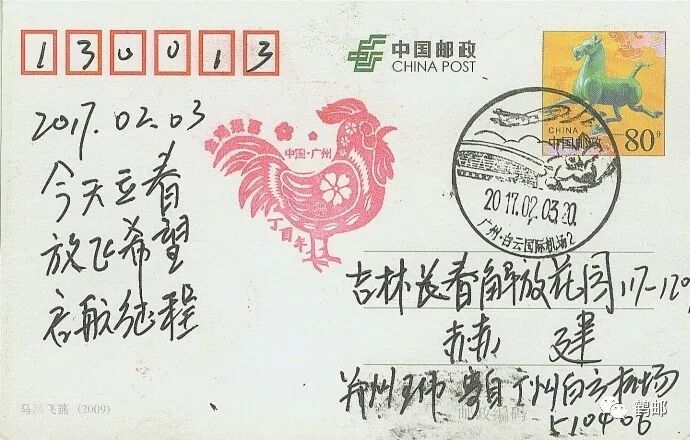 130013
中国邮政
CHINA POST
CHINA
中国邮政
80分
2017.02.03
今天立春
放飞希望
启航征程
金鸡报喜
中国·广州
丁酉年
2017.02.03.20
广州·白云国际机场2
吉林长春解放花园117-120
赫 建
郑州王伟 寄自广州白云机场
510406
马踏飞燕 (2009)
邮政编码
鹤邮